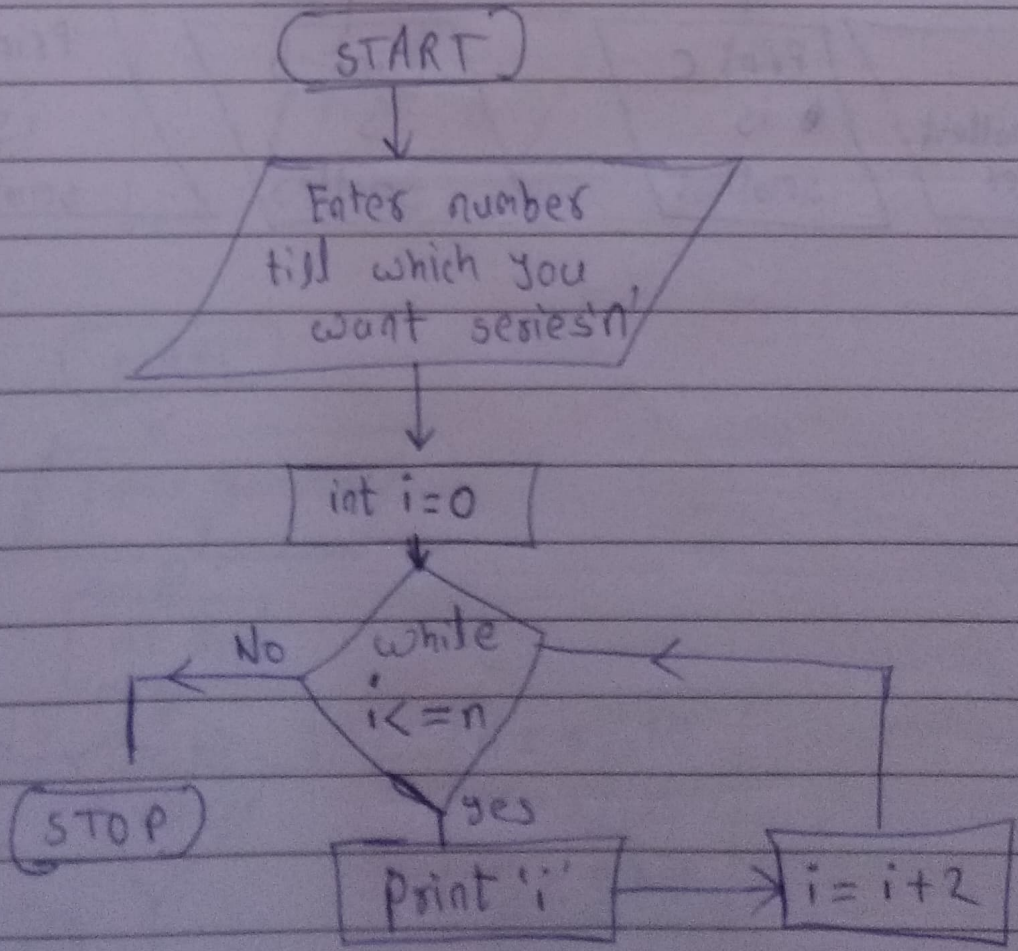 START
Enter number
till which you
want series 'n'
int i=0
while
i<=n
No
yes
STOP
print 'i'
i= i+2